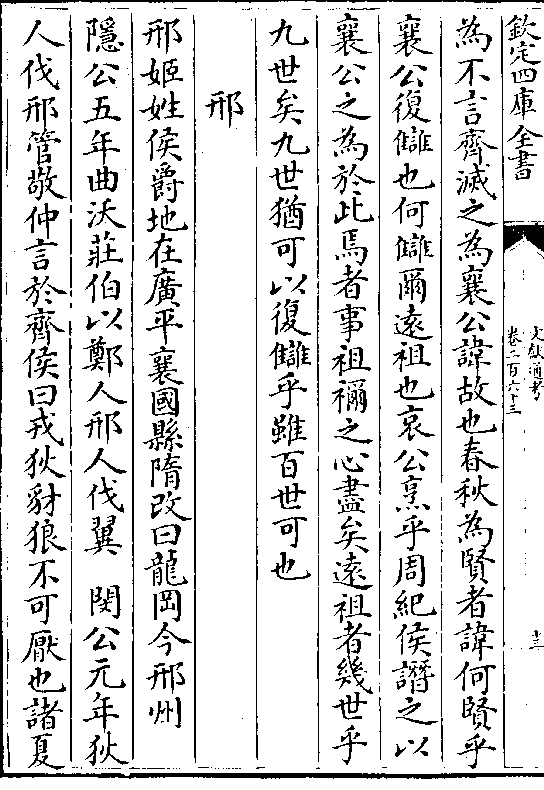 欽定四庫全書
文獻通考
卷二百六十三
十三
為不言齊滅之為襄公諱故也春秋為賢者諱何賢乎
襄公復讎也何讎爾遠祖也哀公烹乎周紀侯譖之以
襄公之為於此焉者事祖禰之心盡矣遠祖者幾世乎
九世矣九世猶可以復讎乎雖百世可也
邢
邢姬姓侯爵地在廣平襄國縣隋改曰龍岡今邢州
隱公五年曲沃莊伯以鄭人邢人伐翼　閔公元年狄
人伐邢管敬仲言於齊侯曰戎狄豺狼不可厭也諸夏